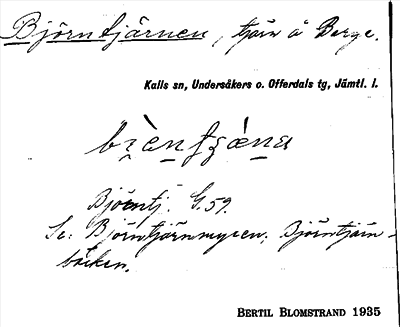 Björntjärnen, tjärn å Berge.
Kalls sn, Undersåkers o. Offerdals tg, Jämtl. l.
Björntj. G.59.
Se: Björntjärnmyren, Björntjärn-
bäcken.
BERTIL BLOMSTRAND 1935